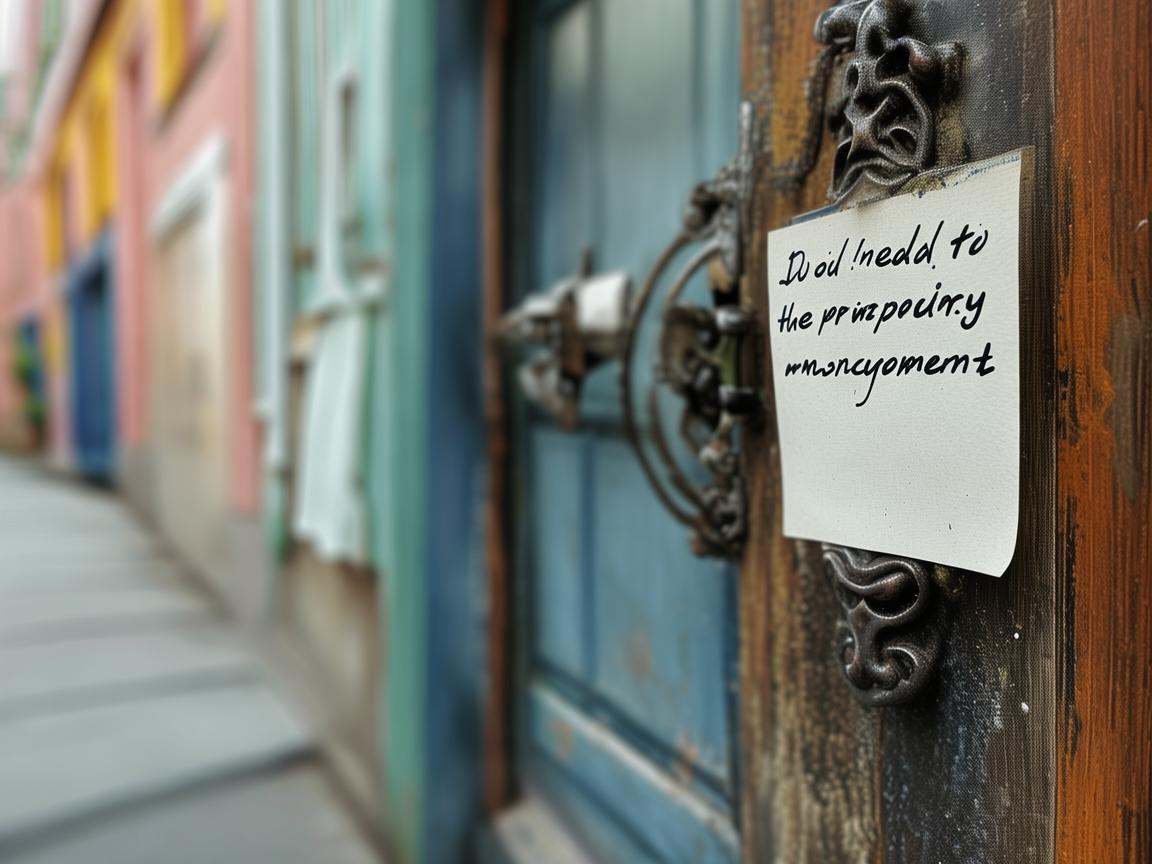 Do od !nedd. to
the prinzpociny
wmoncyoment